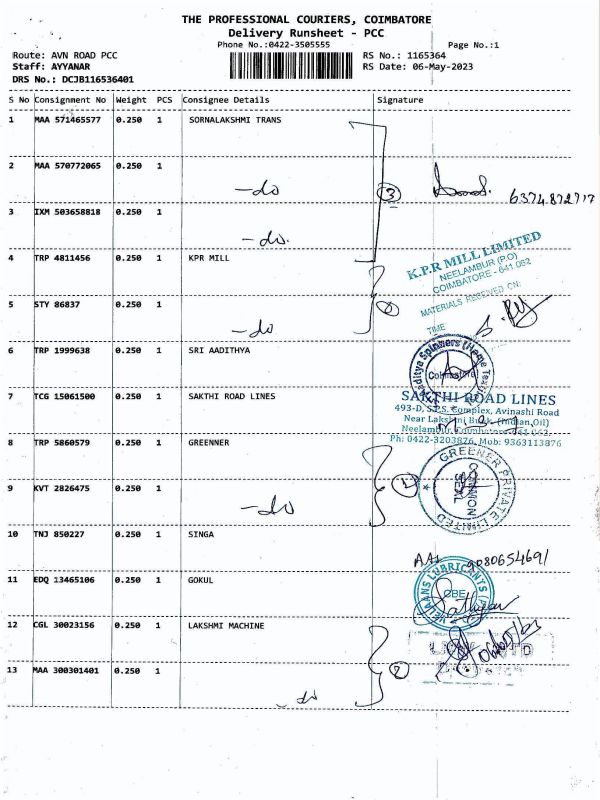 THE PROFESSIONAL COURIERS, COIMBATORE
Delivery Runsheet - PCC
Phone No.:0422-3505555
Page No.:1
Route: AVN ROAD PCC
RS No.: 1165364
Staff: AYYANAR
RS Date: 06-May-2023
DRS No.: DCJB116536401
S No Consignment No Weight PCS Consignee Details Signature
1 MAA 571465577 0.250 1 SORNALAKSHMI TRANS
2 MAA 570772065 0.250 1
-do
3
6374872717
3 IXM 503658818 0.250 1
-do.
4 TRP 4811456 0.250 1 KPR MILL
K.P.R MILL LIMITED
NEELAMBUR (P.O)
COIMBATORE - 641 062
MATERIALS RECEIVED ON:
TIME
5 STY 86837 0.250 1
-do
6 TRP 1999638 0.250 1 SRI AADITHYA
7 TCG 15061500 0.250 1 SAKTHI ROAD LINES
SAKTHI ROAD LINES
493-D, S.P.S. Complex, Avinashi Road
Near Lakshmi Bunk, (Indian Oil)
Neelambur, Coimbatore-641 062.
Ph: 0422-3203826, Mob: 9363113876
8 TRP 5860579 0.250 1 GREENNER
GREENER PRIVATE LIMITED
COMMON SEAL
9 KVT 2826475 0.250 1
-do
10 TNJ 850227 0.250 1 SINGA
9080654691
11 EDQ 13465106 0.250 1 GOKUL
CBE
12 CGL 30023156 0.250 1 LAKSHMI MACHINE
13 MAA 300301401 0.250 1
2
do